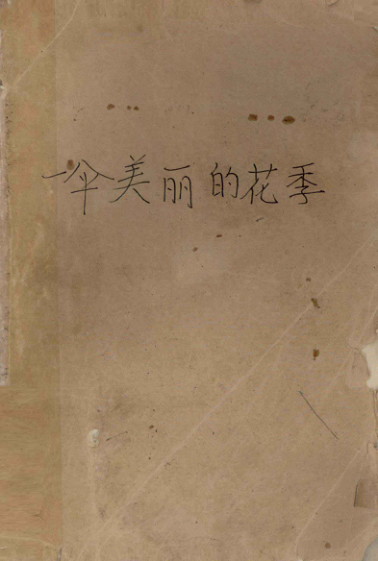 一伞美丽的花季